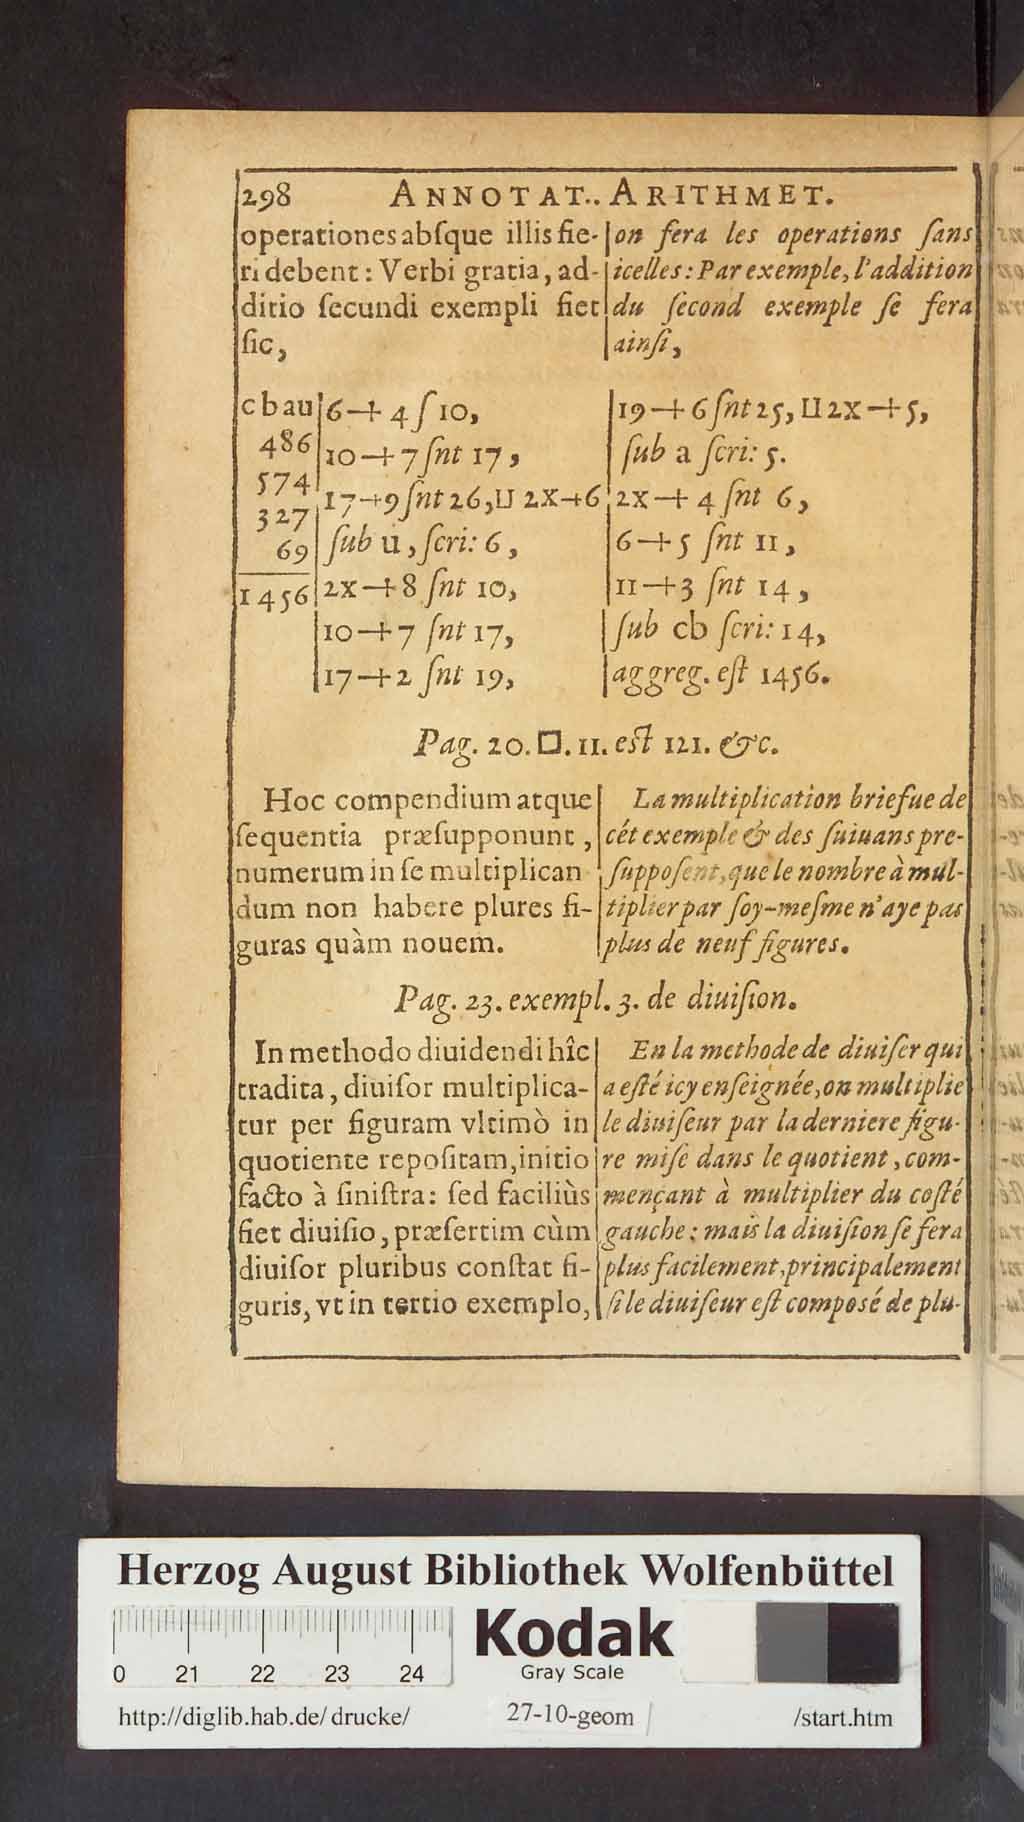 298 ANNOTAT.. ARITHMET.
operationes abſque illis fie-
ri debent : Verbi gratia, ad-
ditio ſecundi exempli fiet
ſic,
on fera les operations ſans
icelles : Par exemple, l'addition
du ſecond exemple ſe fera
ainſi,
c b a u
486
574
327
69
1456
6 -+ 4 ſ 10,
10 -+ 7 ſnt 17,
17 -+ 9 ſnt 26, ⊔ 2X -+ 6
ſub u, ſcri: 6,
2X -+ 8 ſnt 10,
10 -+ 7 ſnt 17,
17 -+ 2 ſnt 19,
19 -+ 6 ſnt 25, ⊔ 2X -+ 5,
ſub a ſcri: 5.
2X -+ 4 ſnt 6,
6 -+ 5 ſnt 11,
11 -+ 3 ſnt 14,
ſub cb ſcri: 14,
aggreg. eſt 1456.
Pag. 20. □. 11. eſt 121. &c.
Hoc compendium atque
ſequentia præſupponunt,
numerum in ſe multiplican
dum non habere plures fi-
guras quàm nouem.
La multiplication briefue de
cét exemple & des ſuiuans pre-
ſuppoſent, que le nombre à mul-
tiplier par ſoy-meſme n'aye pas
plus de neuf figures.
Pag. 23. exempl. 3. de diuiſion.
In methodo diuidendi hîc
tradita, diuiſor multiplica-
tur per figuram vltimò in
quotiente repoſitam, initio
facto à ſiniſtra: ſed faciliùs
fiet diuiſio, præſertim cùm
diuiſor pluribus conſtat fi-
guris, vt in tertio exemplo,
En la methode de diuiſer qui
a eſté icy enſeignée, on multiplie
le diuiſeur par la derniere figu-
re miſe dans le quotient, com-
mençant à multiplier du coſté
gauche : mais la diuiſion ſe fera
plus facilement, principalement
ſi le diuiſeur eſt composé de plu-
Herzog August Bibliothek Wolfenbüttel
Kodak
Gray Scale
0 21 22 23 24
http://diglib.hab.de/drucke/ 27-10-geom /start.htm